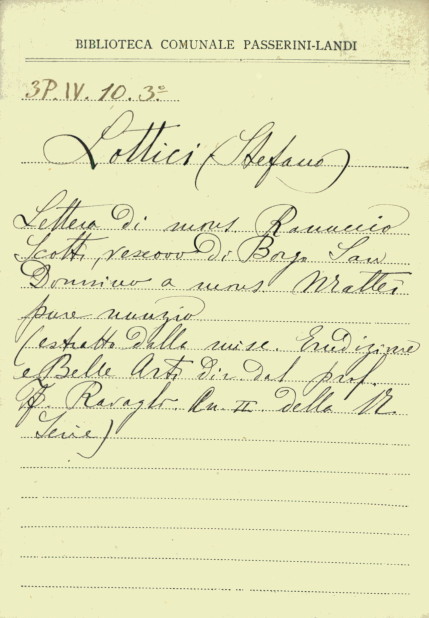 BIBLIOTECA COMUNALE PASSERINI-LANDI
3P. IV. 10. 3º
Lottici (Stefano)
Lettera di mons Ranuccio
Scotti, vescovo di Borgo San
Donnino a mons Mattei
pure nunzio
(estratto dalla misc. Erudizione
e Belle Arti dir. dal prof.
F. Ravagli. An II. della N.
Serie)